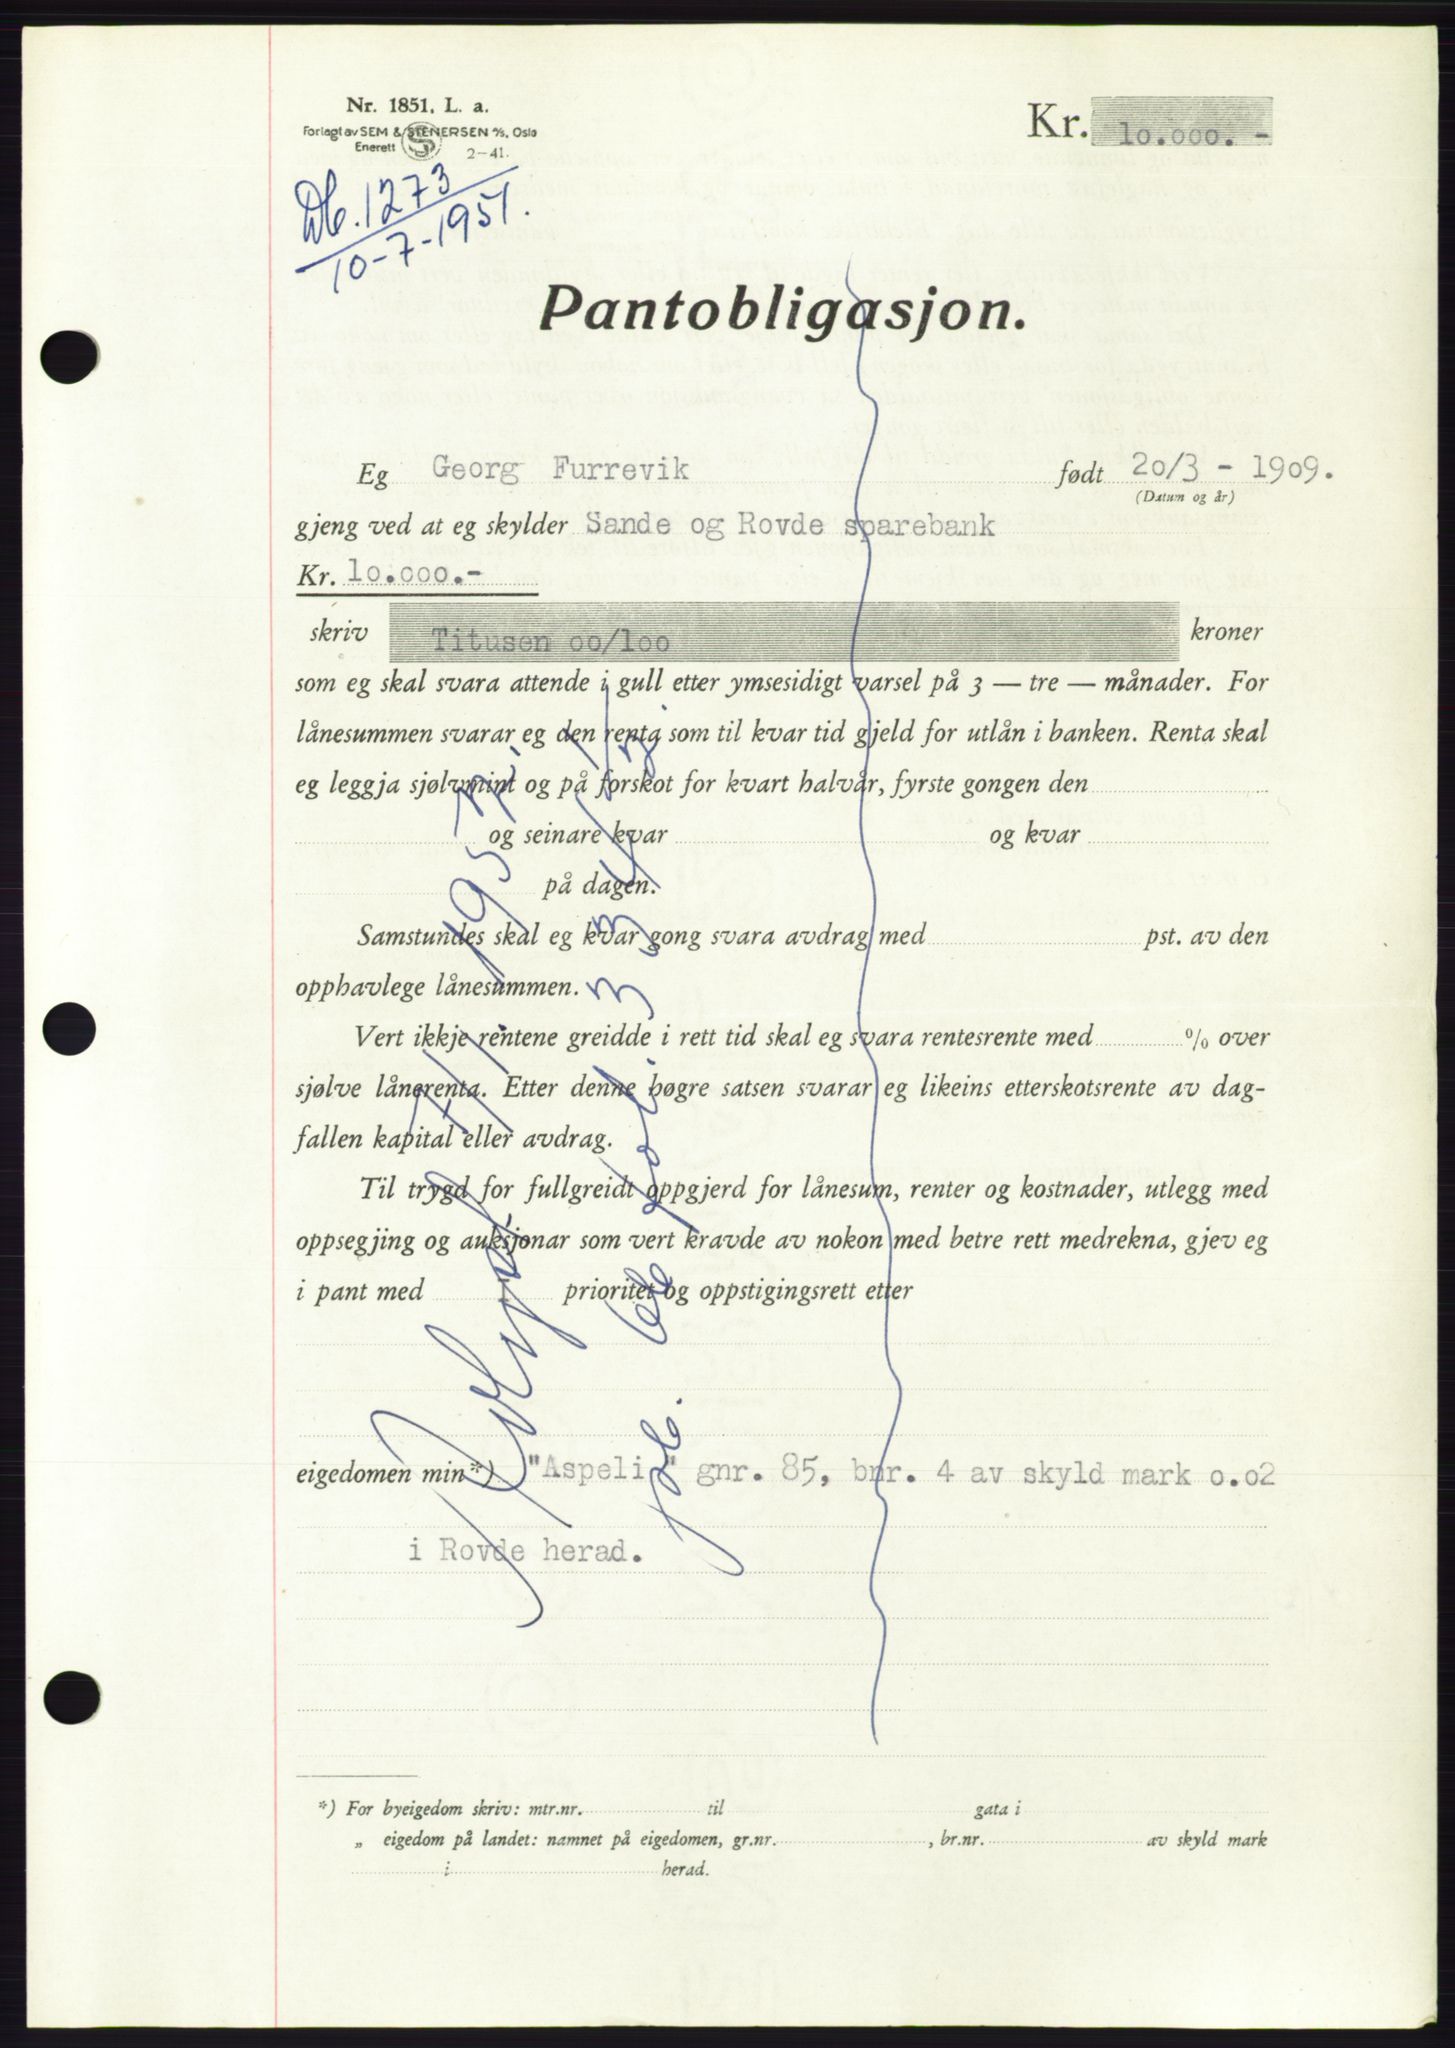 Nr. 1851, L. a.
Forlagt av SEM & STENERSEN A/S, Oslo
Enerett
2-41.
Kr. 10.000.-
Db. 1273
10-7-1951.
Pantobligasjon.
Eg Georg Furrevik født 20/3 - 1909.
(Datum og år)
gjeng ved at eg skylder Sande og Rovde sparebank
Kr. 10.000.-
skriv Titusen oo/loo kroner
som eg skal svara attende i gull etter ymsesidigt varsel på 3 — tre — månader. For
lånesummen svarar eg den renta som til kvar tid gjeld for utlån i banken. Renta skal
eg leggja sjølvmint og på forskot for kvart halvår, fyrste gongen den
og seinare kvar og kvar
på dagen.
Samstundes skal eg kvar gong svara avdrag med pst. av den
opphavlege lånesummen.
Vert ikkje rentene greidde i rett tid skal eg svara rentesrente med % over
sjølve lånerenta. Etter denne høgre satsen svarar eg likeins etterskotsrente av dag-
fallen kapital eller avdrag.
Til trygd for fullgreidt oppgjerd for lånesum, renter og kostnader, utlegg med
oppsegjing og auksjonar som vert kravde av nokon med betre rett medrekna, gjev eg
i pant med prioritet og oppstigingsrett etter
eigedomen min*) "Aspeli" gnr. 85, bnr. 4 av skyld mark o.o2
i Rovde herad.
*) For byeigedom skriv: mtr.nr. til gata i
„ eigedom på landet: namnet på eigedomen, gr.nr. , br.nr. av skyld mark
i herad.